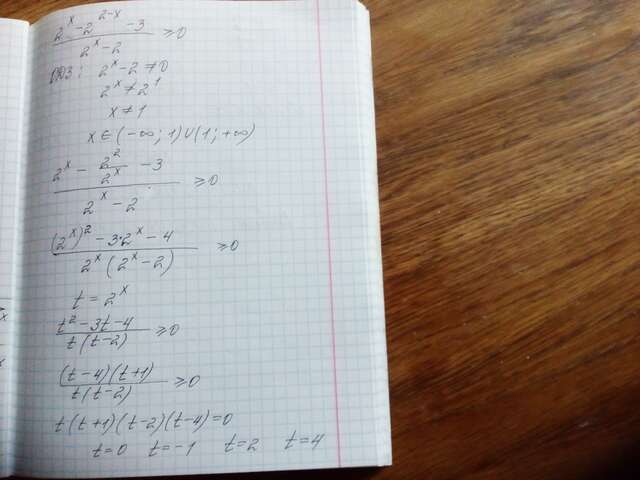 (2^x - 2^(2-x) - 3)/(2^x - 2) ≥ 0
ОДЗ: 2^x - 2 ≠ 0
2^x ≠ 2^1
x ≠ 1
x ∈ (-∞; 1) ∪ (1; +∞)
(2^x - 2^2/2^x - 3)/(2^x - 2) ≥ 0
((2^x)^2 - 3·2^x - 4)/(2^x(2^x - 2)) ≥ 0
t = 2^x
(t^2 - 3t - 4)/(t(t-2)) ≥ 0
((t-4)(t+1))/(t(t-2)) ≥ 0
t(t+1)(t-2)(t-4)=0
t=0 t=-1 t=2 t=4